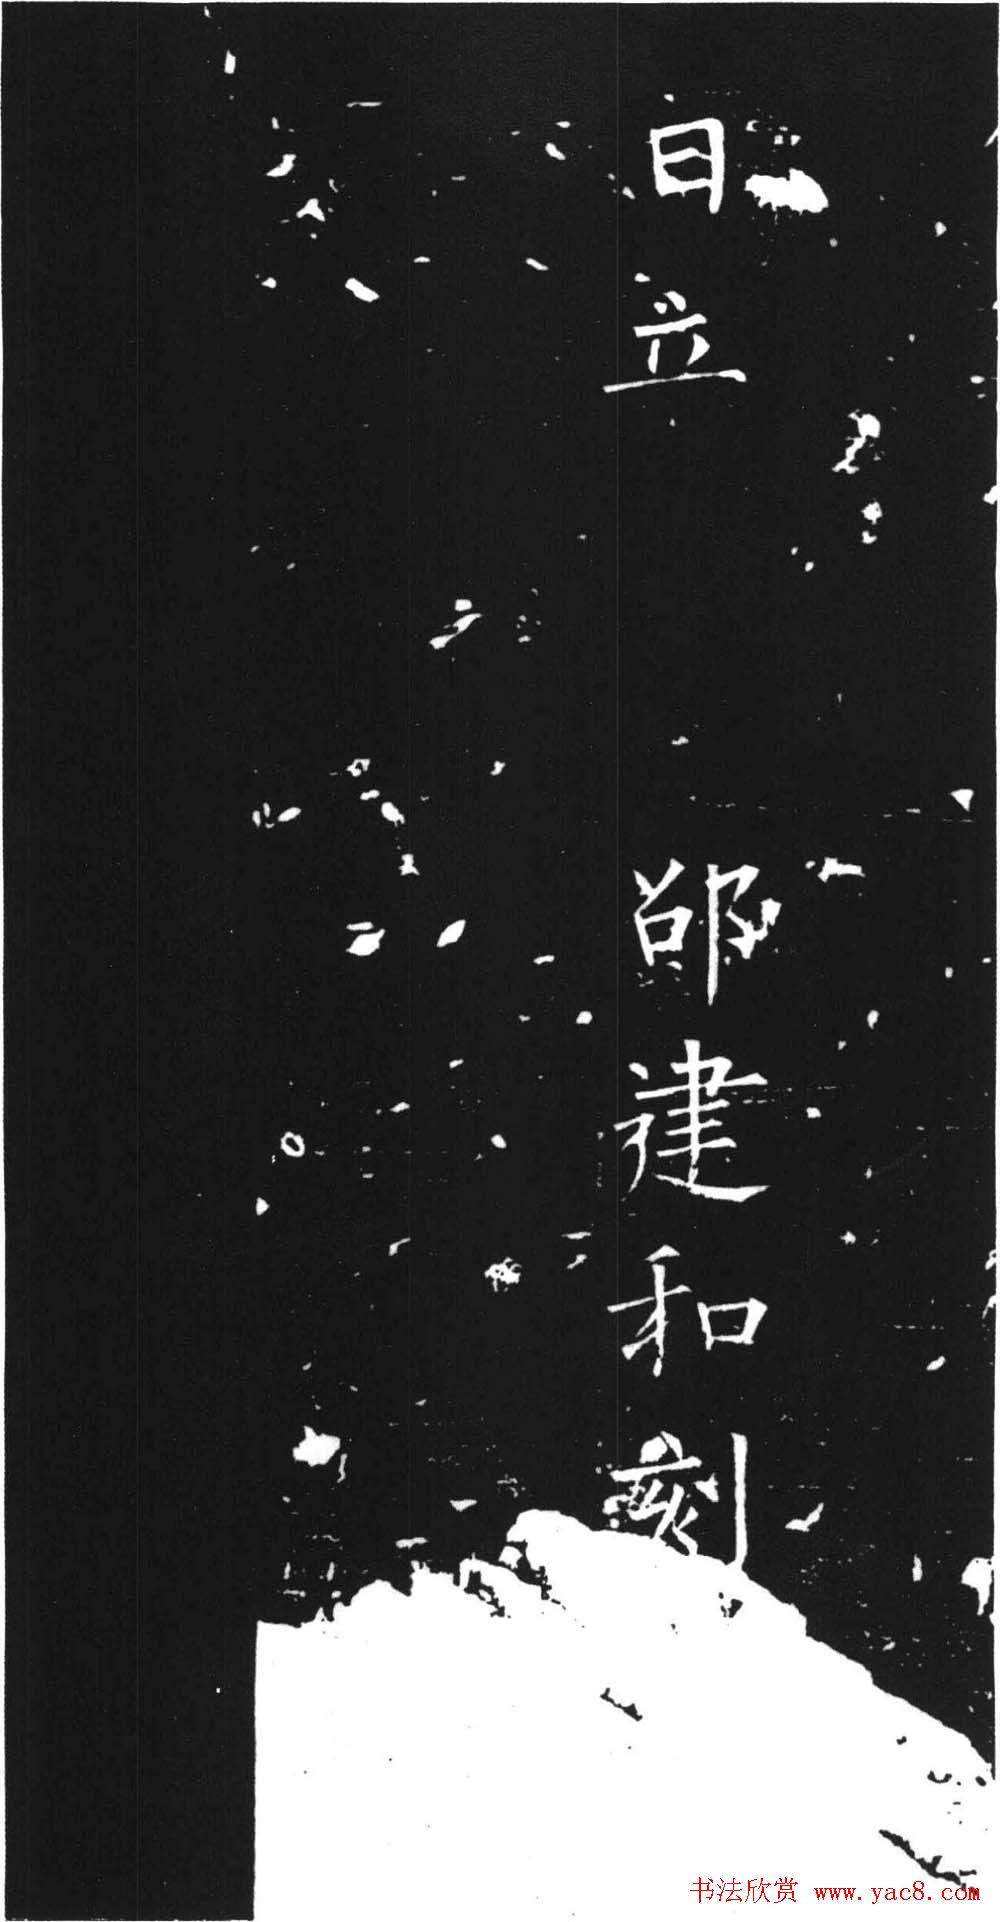 日立 邵建和刻
书法欣赏 www.yac8.com